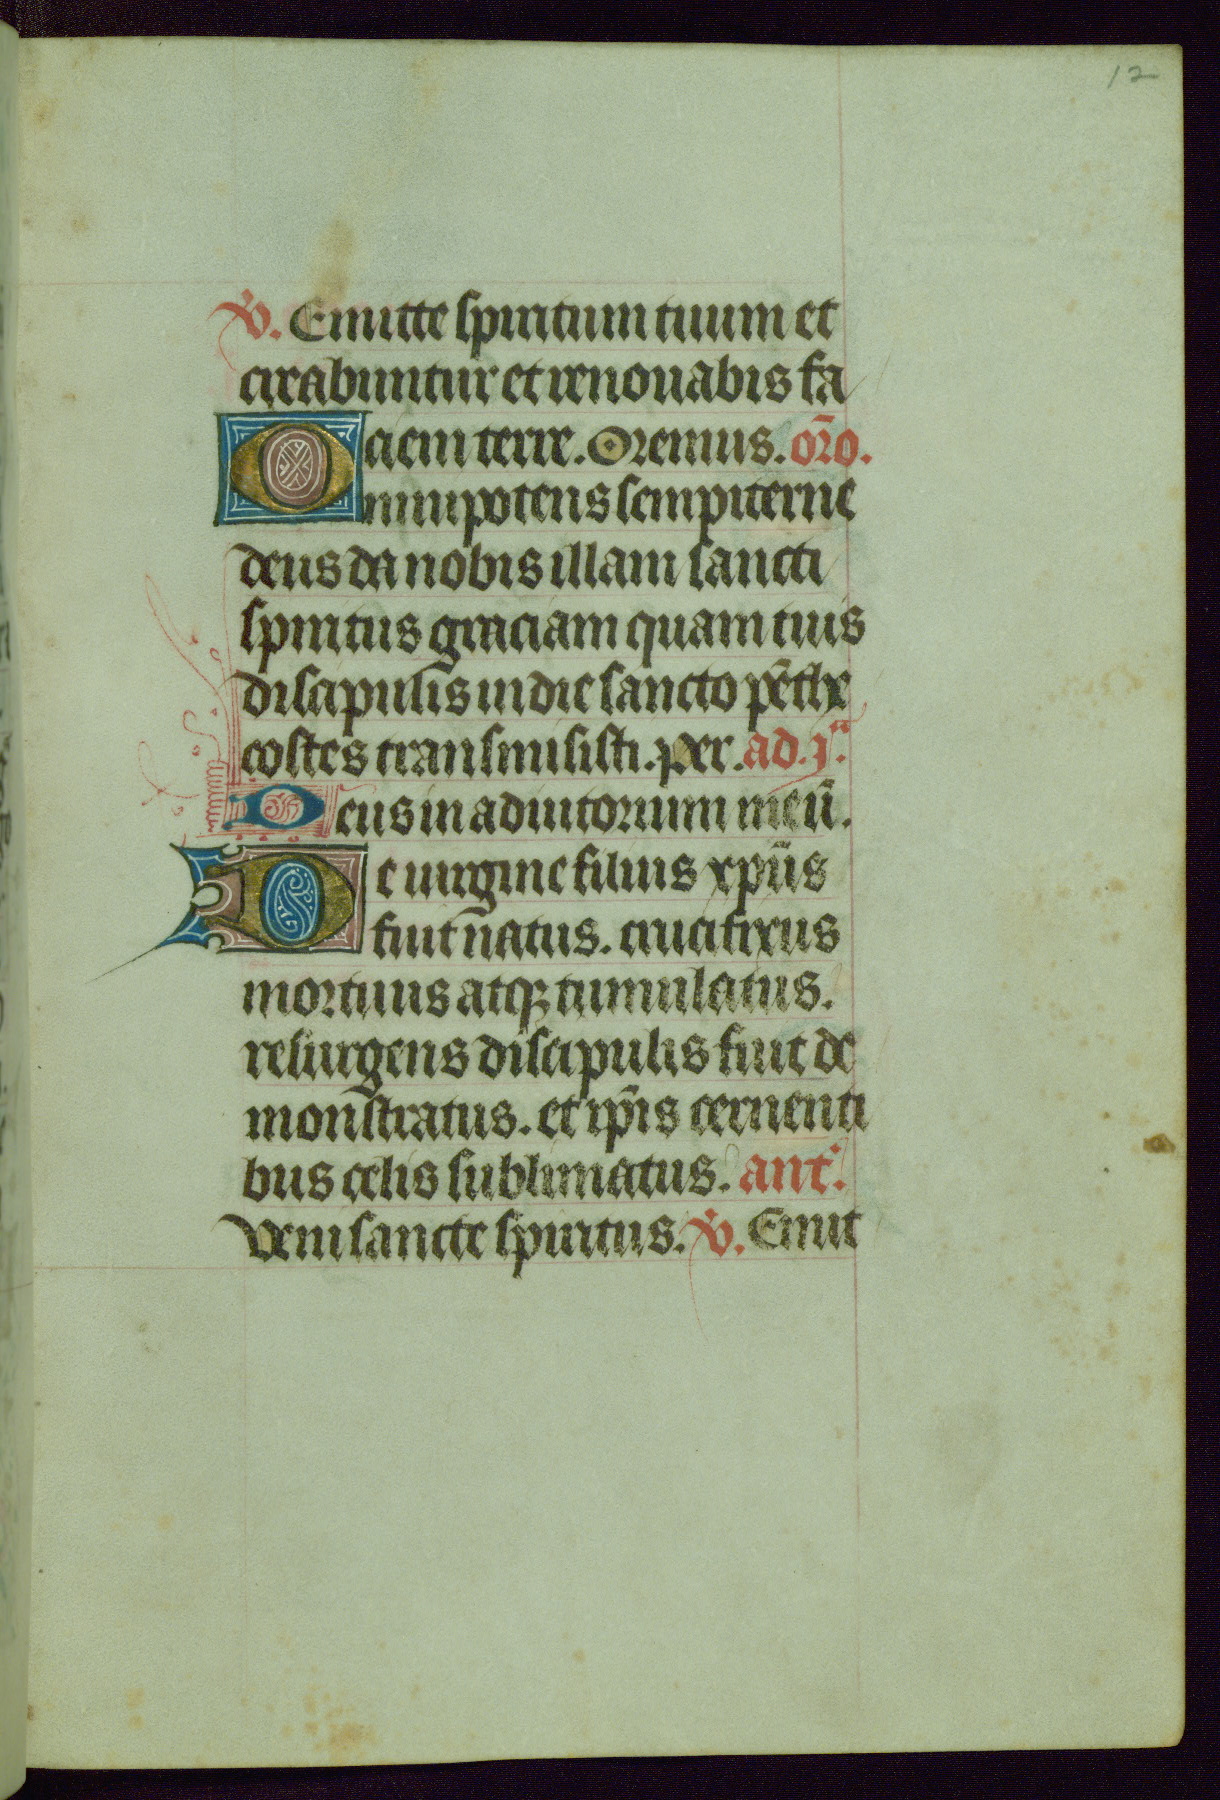 12
℣. Emitte spiritum tuum et
creabuntur et renouabis fa
ciem terre. Oremus. or̄o.
Omnipotens sempiterne
deus da nobis illam sancti
spiritus graciam quam tuis
discipulis in die sancto pēthe
costes transmisisti. per. ad .jᵃ.
Deus in adiutorium meū.
De uirgine filius xp̄us
fuit natus. crucifixus
mortuus atqꝫ tumulatus.
resurgens discipulis fuit de
monstratus. et ip̄is cernenti
bus celis sublimatus. ant̄.
Veni sancte spiritus. ℣. Emit